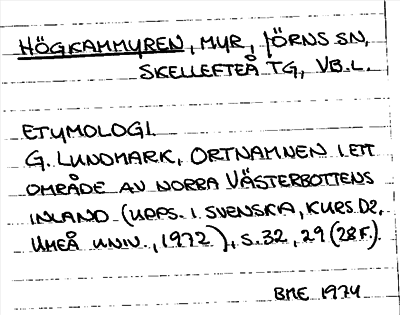 HÖGKAMMYREN, MYR, JÖRNS SN,
SKELLEFTEÅ TG, VB.L.
ETYMOLOGI
G. LUNDMARK, ORTNAMNEN I ETT
OMRÅDE AV NORRA VÄSTERBOTTENS
INLAND (UPPS. I SVENSKA, KURS D2,
UMEÅ UNIV., 1972), S. 32, 29 (28 F.).
BME 1974